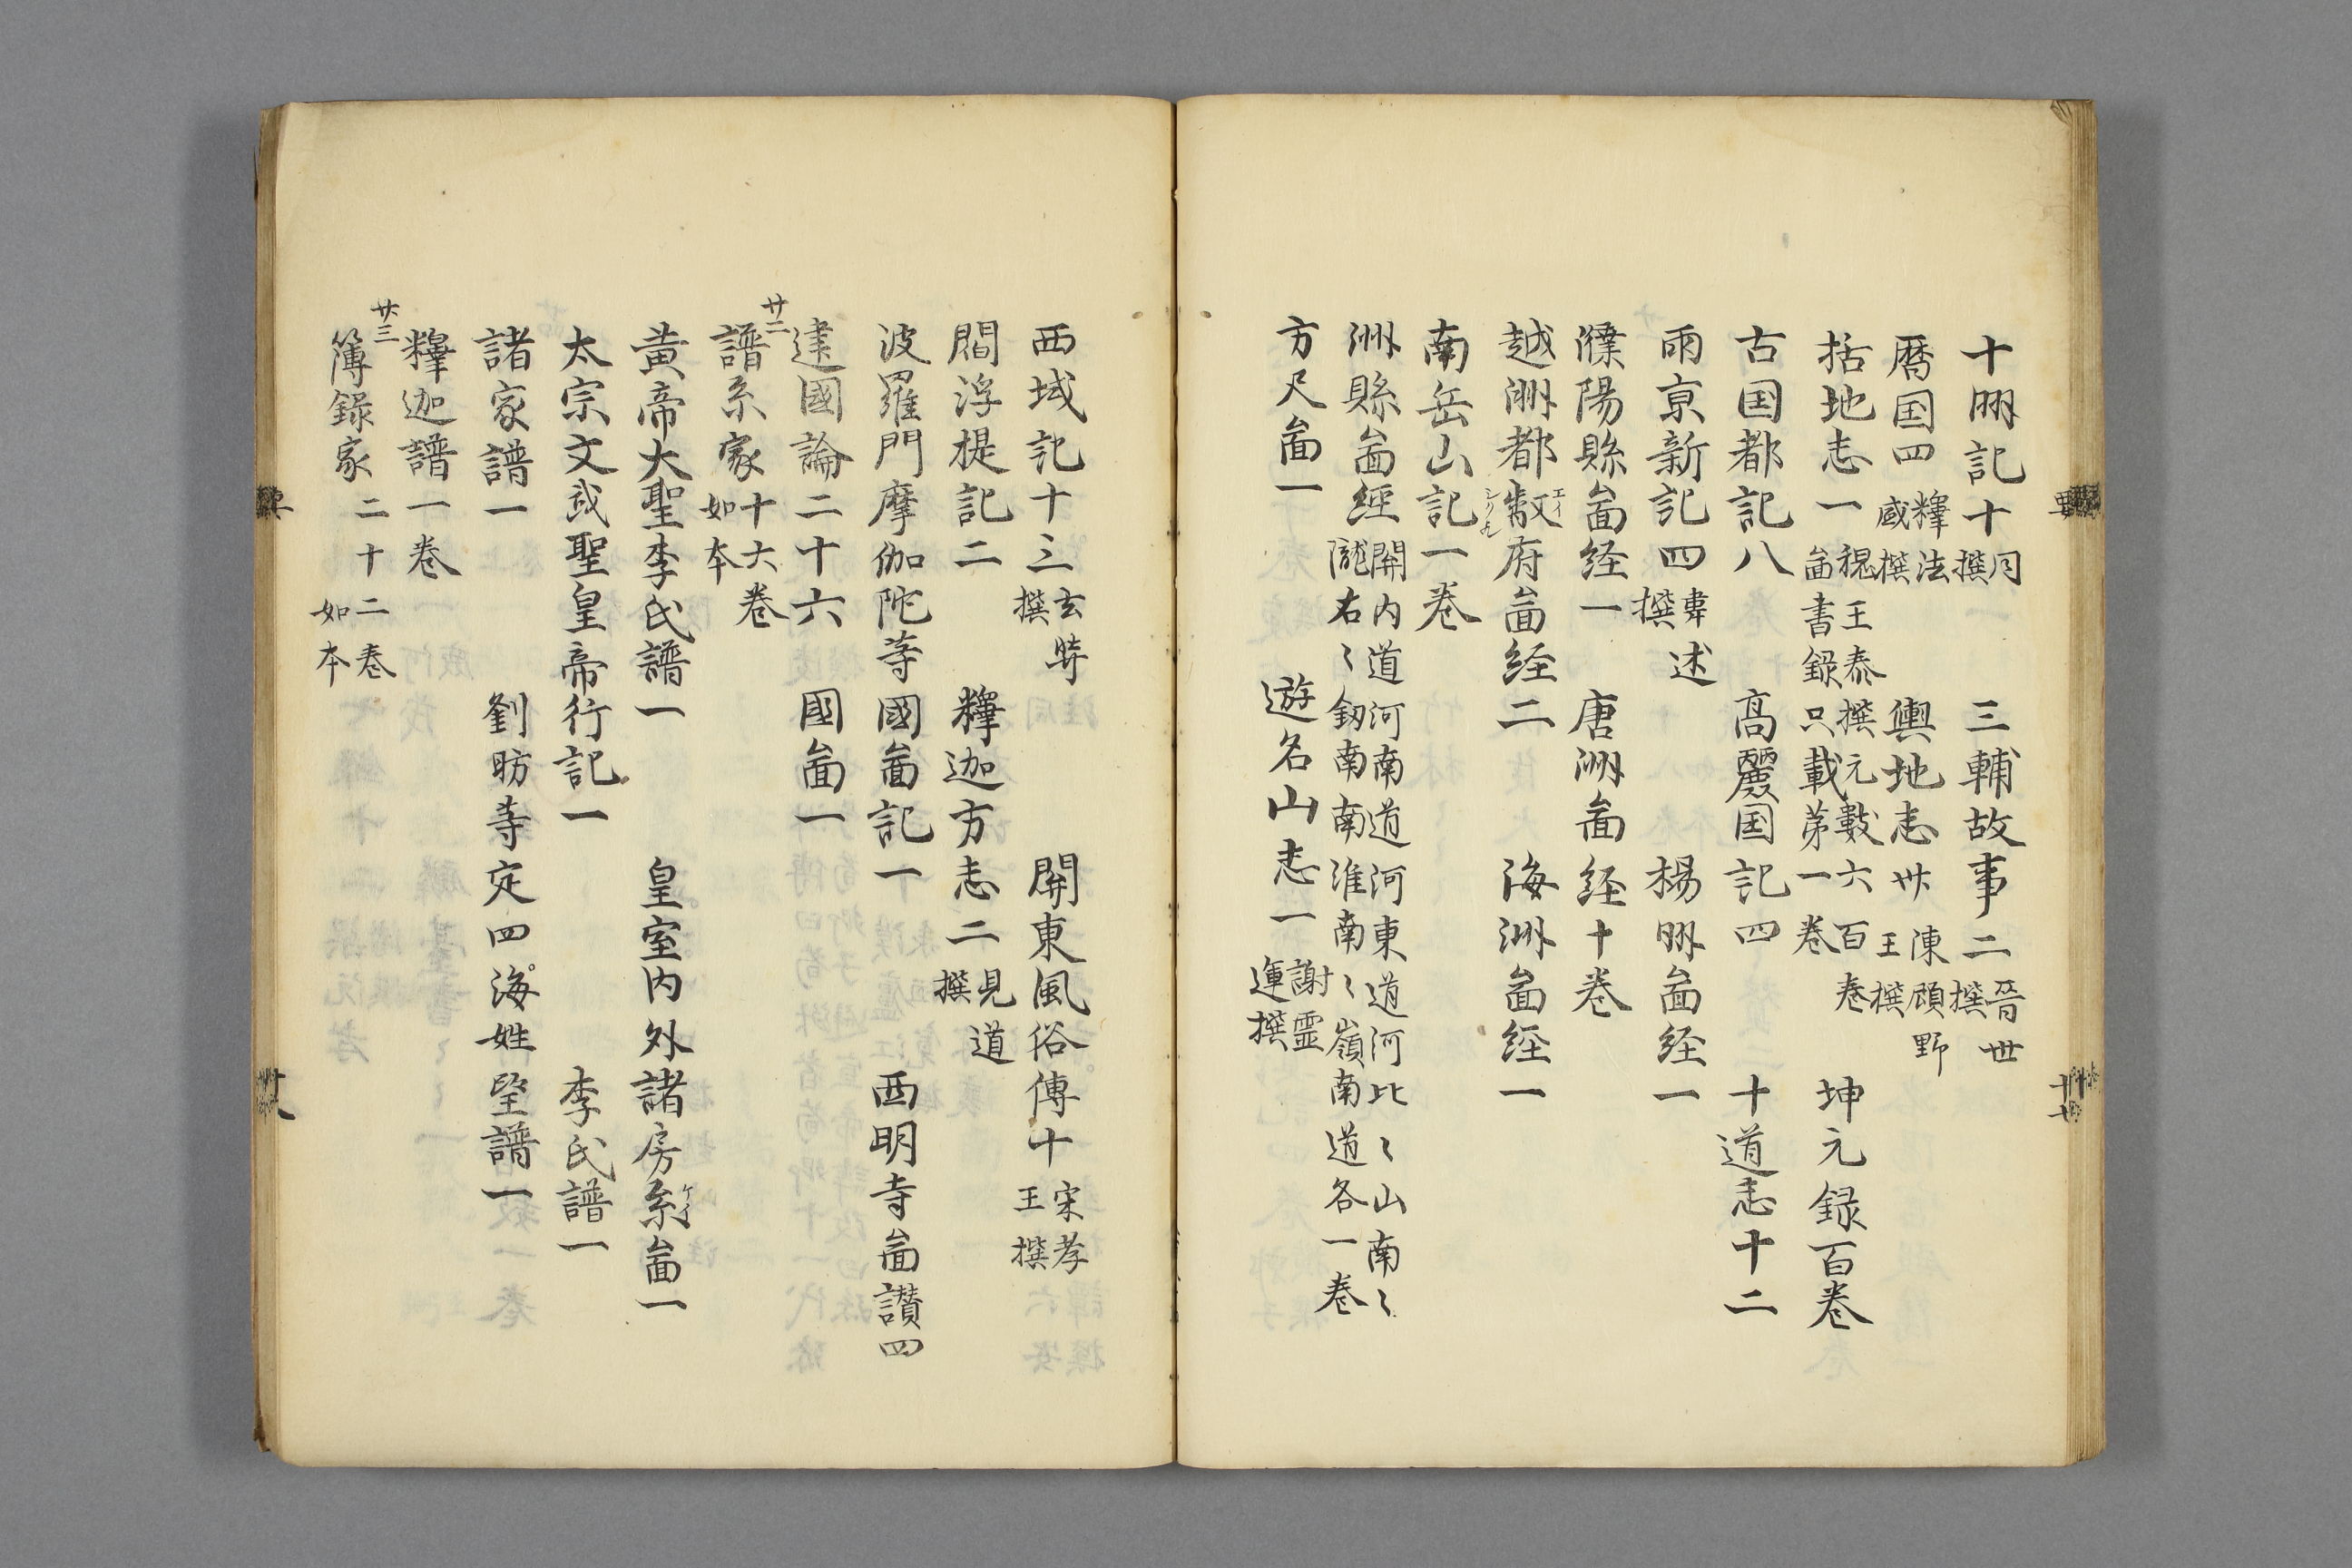 十州記十 同撰 三輔故事二 晉世撰
曆国四 釋法盛撰 輿地志卅 陳顧野王撰
括地志一 魏王泰撰元數六百卷啚書録只載第一卷 坤元録百卷
古国都記八 高麗国記四 十道志十二
兩亰新記四 韋述撰 楊州啚経一
濮陽縣啚経一 唐洲啚経十卷
越洲都督府啚経二 海洲啚経一
南岳山記一卷
洲縣啚經 關内道河南道河東道河北〻山南〻隴右〻劔南南淮南〻嶺南道各一卷
方尺啚一 遊名山志一 謝霊運撰
西域記十二 玄奘撰 關東風俗傳十 宋孝王撰
閻浮提記二 釋迦方志二 見道撰
波羅門摩伽陀等國啚記一 西明寺啚讃四
建國論二十六 國啚一
廿二 譜系家 十六卷如本
黄帝大聖李氏譜一 皇室内外諸房系啚一
太宗文武聖皇帝行記一 李氏譜一
諸家譜一 劉昉等定四海姓望譜一
釋迦譜一卷
廿三 簿録家 二十二卷如本